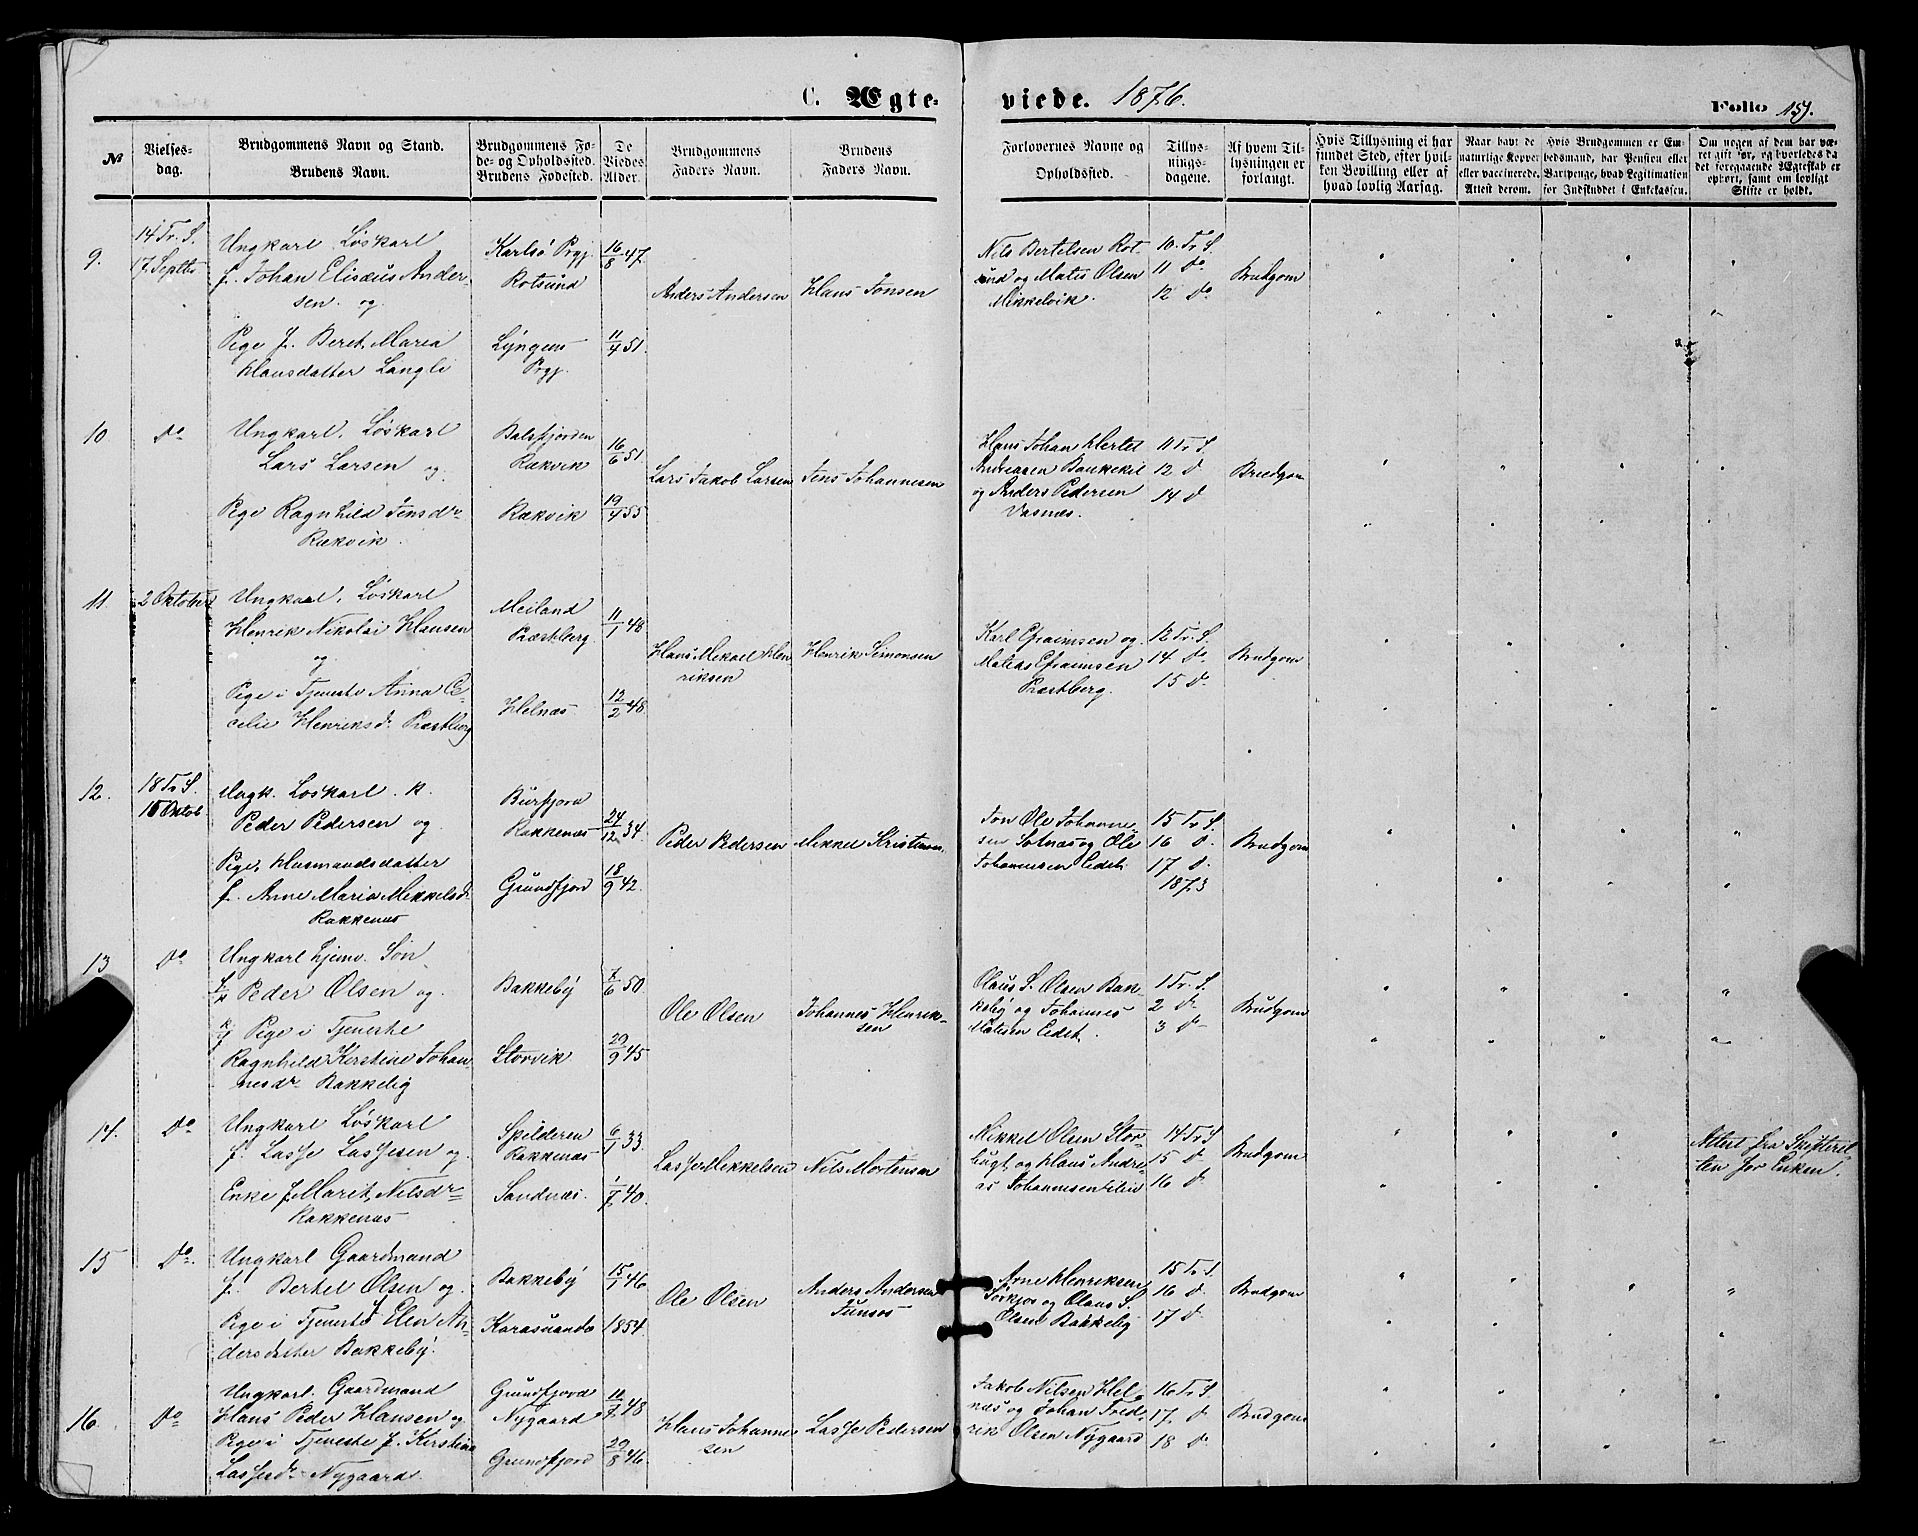 C. Ægte-
viede. 1876.
Folio 157.
№
Vielses-
dag.
Brudgommens Navn og Stand.
Brudens Navn.
Brudgommens Fø-
de- og Opholdssted.
Brudens Fødested.
De
Viedes
Alder.
Brudgommens
Faders Navn.
Brudens
Faders Navn.
Forlovernes Navne og
Opholdssted.
Tillys-
nings-
dagene.
Af hvem Til-
lysningen er
forlangt.
Hvis Tillysning ei har
fundet Sted, efter hvil-
ken Bevilling eller af
hvad lovlig Aarsag.
Naar havt de
naturlige Kopper
eller vaccinerede.
Attest derom.
Hvis Brudgommen er Em-
bedsmand, har Pension eller
Vartpenge, hvad Legitimation
for Indskuddet i Enkekassen.
Om nogen af dem har væ-
ret gift før, og hvorledes da
det foregaaende Ægteskab er
ophørt, samt om lovligt
Skifte er holdt.
9.
14 Tr. S.
17 Septbr
Ungkarl Løskarl
f. Johan Elisæus Ander-
sen og
Pige f. Beret Maria
Hansdatter Langli
Karlsø Prgj.
Rotsund
Lyngens
Prgj.
16/8 47.
11/4 51.
Anders Andersen
Hans Jonsen
Nils Bertelsen Rot
sund og Matis Olsen
Mikkelvik.
10. Tr S.
11 Do
12 Do
Brudgom
10
Do
Ungkarl, Løskarl
Lars Larsen og
Pige Ragnhild Jensdr
Rækvik.
Balsfjorden
Rækvik
Rækvik
16/6 51.
19/4 55
Lars Jakob Larsen
Jens Johannesen
Hans Johan Hertel
Andreasen Bankekil
og Anders Pedersen
Vasnæs.
11 Tr S.
12 D
14 D
Brudgom
11.
2 Oktober
Ungkarl, Løskarl
Henrik Nikolai Hansen
og
Pige i Tjeneste Anna Ce-
celie Henriksdr Præstberg
Meiland
Præstberg.
Helnæs
11/1 48
12/2 48
Hans Mikael Hen
riksen
Henrik Simonsen
Karl Efraimsen og
Matias Efraimsen
Præstberg.
12 Tr. S.
14 Do
15 D
Brudgom
12.
18 Tr S.
15 Oktob
Ungk. Løskarl. k.
Peder Pedersen og
Pige, Husmandsdatter
f. Anne Maria Mikkelsdr
Rakkenæs
Burfjord
Rakkenæs
Grundfjord
24/12 34.
18/9 42.
Peder Pedersen
Mikkel Kristiansen
Jon Ole Johanne-
sen Sotnæs og Ole
Johannesen Eidet
15 Tr S.
16 D.
17 D.
1873
Brudgom
13
Do
Ungkarl hjemv. Søn
Peder Olsen og
Pige i Tjeneste
Ragnhild Kirstine Johan
nesdr Bakkeby
Bakkeby
Storvik
7/6 50.
29/9 45
Ole Olsen
Johannes Henrik-
sen
Olaus S. Olsen Bak-
keby og Johannes
Matisen Eidet.
1 Tr. S.
2 D
3 D
Brudgom
14.
Do
Ungkarl Løskarl
f. Lasse Lassesen og
Enke f. Marit Nilsdr
Rakkenæs
Spilderen
Rakkenæs
Sandnæs.
6/1 33.
1/7 40.
Lasse Mikkelsen
Nils Mortensen
Mikkel Olsen Stor-
bugt og Hans Andre-
as Johannesen
14 Tr S
15 D
16 D.
Brudgom
Attest fra Skifteret
ten for Enken.
15
Do.
Ungkarl Gaardmand
f. Berthel Olsen og
Pige i Tjeneste f. Elen An-
dersdatter Bakkeby.
Bakkeby
Karasuando
15/1 46
1854.
Ole Olsen
Anders Andersen
Arne Henriksen
Sørkjos og Olaus S.
Olsen Bakkeby
15 Tr S.
16 D.
17 D
Brudgom
16.
Do
Ungkarl. Gaardmand
Hans Peder Hansen og
Pige i Tjeneste f. Kirstina
Lassesdr Nygaard.
Grundfjord
Nygaard
Grundfjord
11/7 48
29/8 46.
Hans Johanne
sen
Lasse Pedersen
Jakob Nilsen Hel-
næs og Johan Fred-
rik Olsen Nygaard
16 Tr S.
17. D
18 D
Brudgom